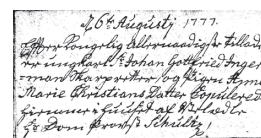 d 6te Augustj 1777.
Efter Kongelig allernaadigste tillad
er ungkarl Sr Johan Gottfried Inger
-man Skarpretter, og Pigen Anne
Marie Christians Datter Copulered
hiemme i Huuset af
Hr Dom Provst Schultz,